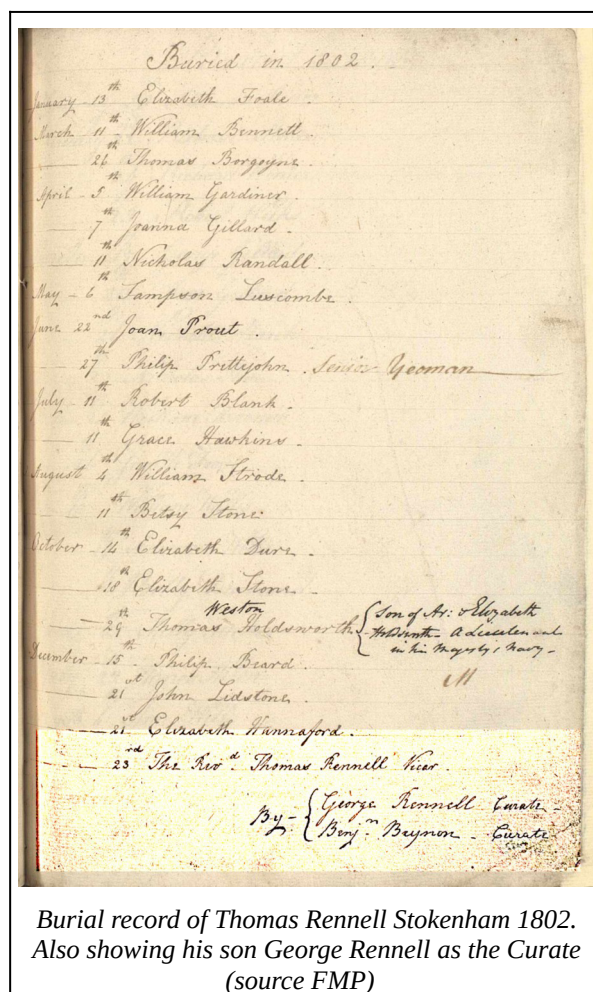 Buried in 1802.
January 13th Elizabeth Foale.
March 11th William Bennett.
26th Thomas Borgoyne.
April 5th William Gardiner.
7th Joanna Gillard.
11th Nicholas Randall.
May 6th Sampson Luscombe.
June 22nd Joan Prout.
27th Philip Prettijohn. Senior Yeoman
July 11th Robert Blank.
11th Grace Hawkins.
August 4th William Strode.
11th Betsy Stone.
October 14th Elizabeth Dure.
18th Elizabeth Stone.
29th Thomas Weston Holdsworth {Son of Ar: & Elizabeth
Holdsworth A Lieutenant
in his Majesty's Navy -
December 15th Philip Beard.
21st John Lidstone.
21st Elizabeth Hannaford.
23rd The Revd. Thomas Rennell Vicar.
By {George Rennell Curate
Benjn Beynon Curate
Burial record of Thomas Rennell Stokenham 1802.
Also showing his son George Rennell as the Curate
(source FMP)